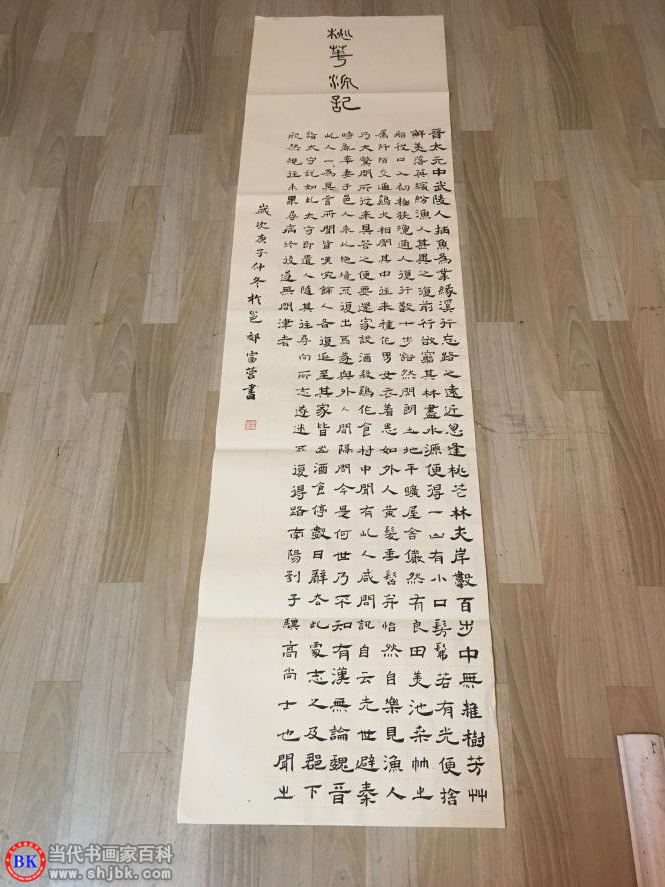 桃華源記
晉太元中武陵人捕魚為業緣溪行忘路之遠近忽逢桃花林夾岸數百步中無雜樹芳艸
鮮美落英繽紛漁人甚異之復前行欲窮其林盡水源便得一山有小口髣髴若有光便捨
船從口入初極狹纔通人復行數十步豁然開朗土地平曠屋舍儼然有良田美池桑竹之
屬阡陌交通鷄犬相聞其中往來種作男女衣着悉如外人黃髮垂髫并怡然自樂見漁人
乃大驚問所從來具答之便要還家設酒殺鷄作食村中聞有此人咸問訊自云先世避秦
時亂率妻子邑人來此絕境不復出焉遂與外人間隔問今是何世乃不知有漢無論魏晉
此人一一為具言所聞皆嘆惋餘人各復延至其家皆出酒食停數日辭去此處志之及郡下
詣太守說如此太守即遣人隨其往尋向所志遂迷不復得路南陽劉子驥高尚士也聞之
欣然規往未果尋病終後遂無問津者
歲次庚子仲冬於邑郝富營書
BK
当代书画家百科
www.shjbk.com